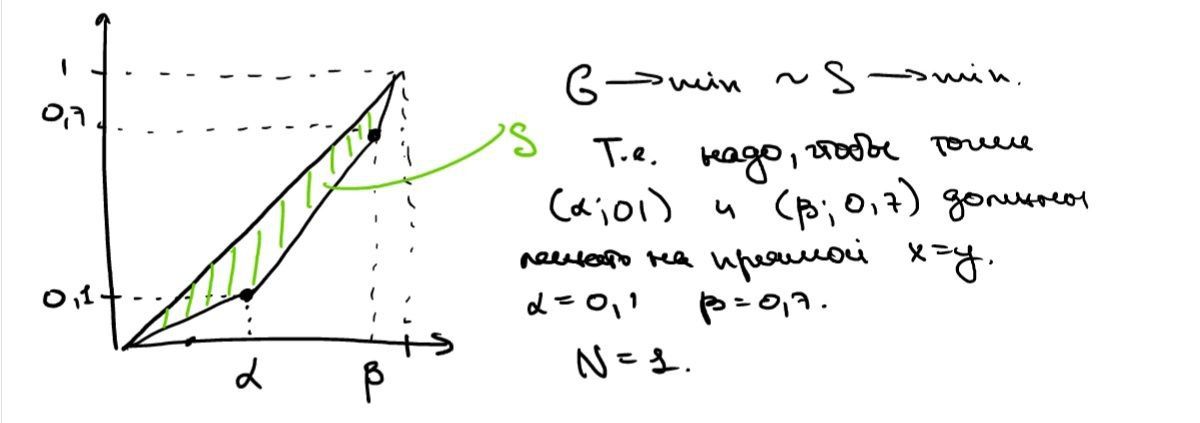 1
0,7
0,1
α
β
S
G → min ~ S → min.
Т.е. надо, чтобы точки
(α; 01) и (β; 0,7) должны
лежать на прямой x=y.
α = 0,1 β = 0,7.
N = 1.